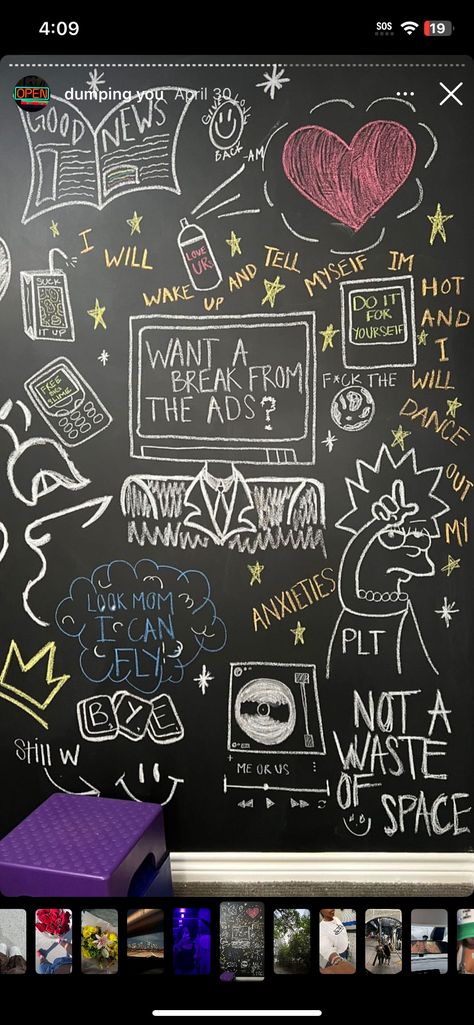 4:09
SOS
19
OPEN
dumping you April 30
GOOD NEWS
BACK
-AM
I WILL
WAKE UP AND TELL MYSElF IM HOT AND I WILL DANCE OUT MI
ANXIETIES
LOVE
URS
SUCK
IT UP
DO IT
FOR
YOURSElF
WANT A
BREAK FROM
THE ADS?
FREE
BIG
SLIME
F*CK THE
LOOK MOM
I CAN
FLY!
PLT
BYE
ME OR US
Still W
NOT A
WASTE
OF
SPACE